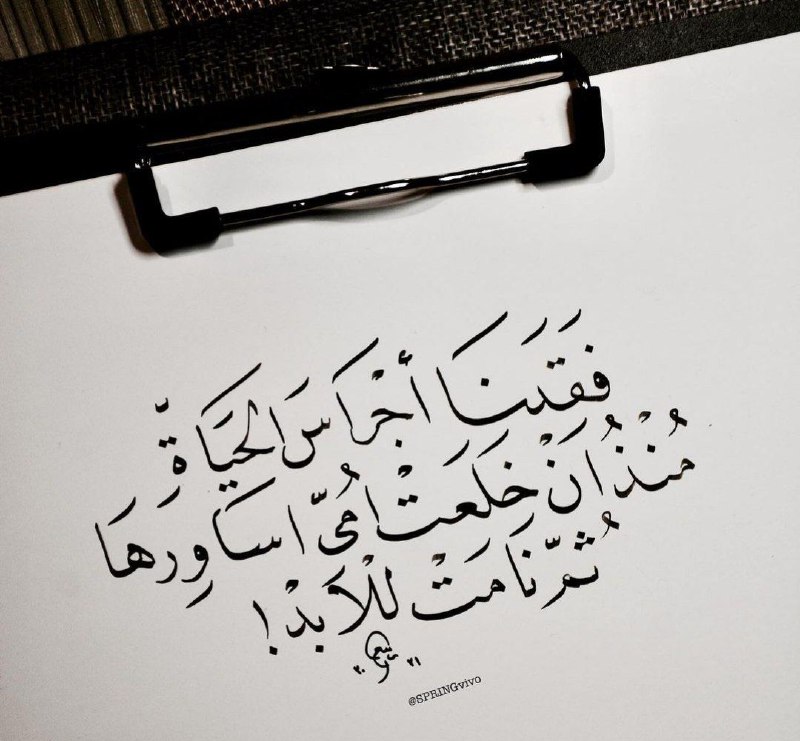 فَقَدنَا أجْرَاسَ الحَيَاةِ
مُنْذُ اَنْ خَلَعَتْ اُمّى اسَاوِرَهَا
ثُمّ نَامَتْ لِلْاَبَدْ!
٢٠ ٢١
@SPRINGvivo